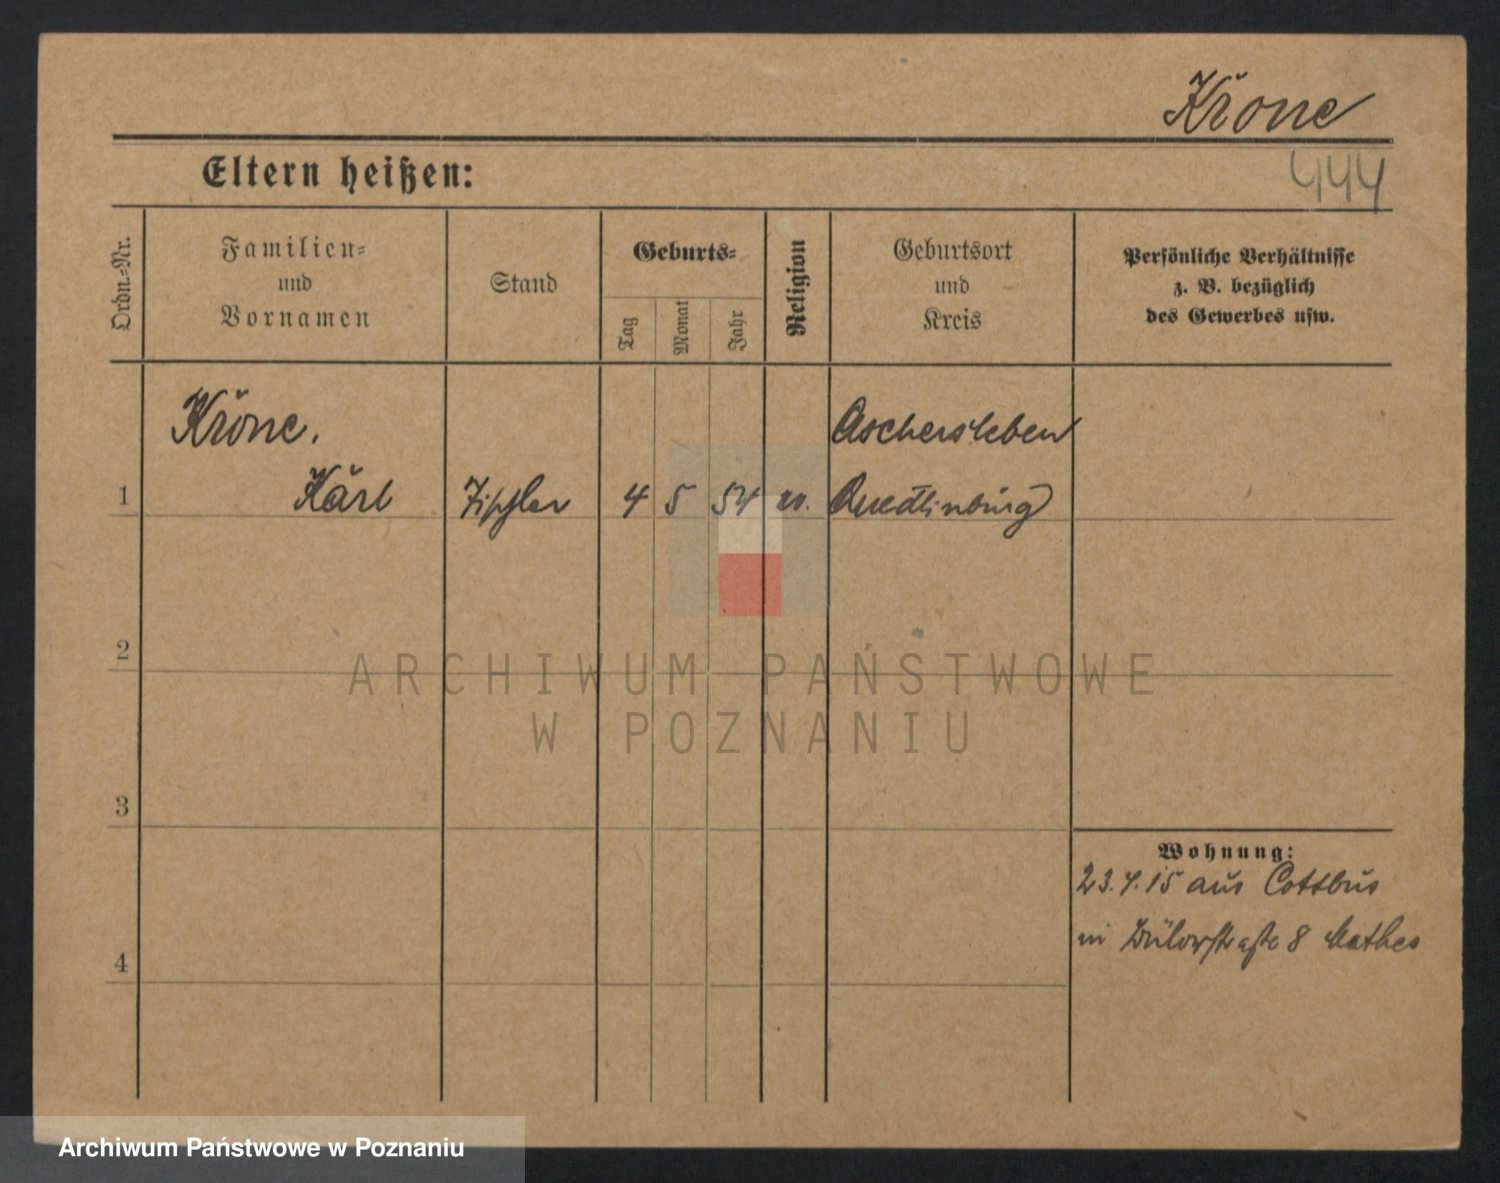 Krone
444
Eltern heißen:
Ordn.-Nr.
Familien-
und
Vornamen
Stand
Geburts-
Tag
Monat
Jahr
Religion
Geburtsort
und
Kreis
Persönliche Verhältnisse
z. B. bezüglich
des Gewerbes usw.
Krone,
Aschersleben
1 Karl Tischler 4 5 54 ev. Quedlinburg
2
3
4
Wohnung:
23.4.15 aus Cottbus
in Bülowstraße 8
ARCHIWUM PAŃSTWOWE
W POZNANIU
Archiwum Państwowe w Poznaniu